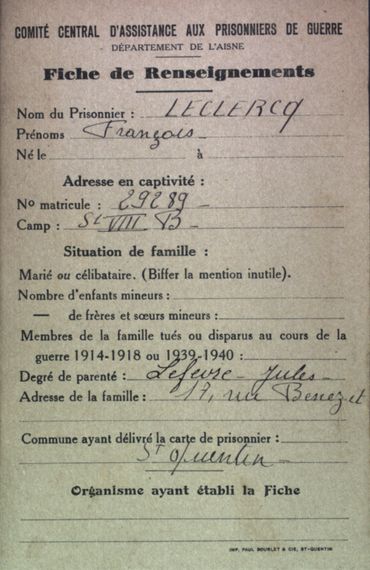 COMITÉ CENTRAL D'ASSISTANCE AUX PRISONNIERS DE GUERRE
DÉPARTEMENT DE L'AISNE
Fiche de Renseignements
Nom du Prisonnier : LECLERCQ
Prénoms François
Né le à
Adresse en captivité :
No matricule : 29289
Camp : St VIII B
Situation de famille :
Marié ou célibataire. (Biffer la mention inutile).
Nombre d'enfants mineurs :
— de frères et sœurs mineurs :
Membres de la famille tués ou disparus au cours de la
guerre 1914-1918 ou 1939-1940 :
Degré de parenté : Lefevre - Jules -
Adresse de la famille : 17, rue Benezet
Commune ayant délivré la carte de prisonnier :
St Quentin
Organisme ayant établi la Fiche
IMP. PAUL BOURLET & CIE, ST-QUENTIN